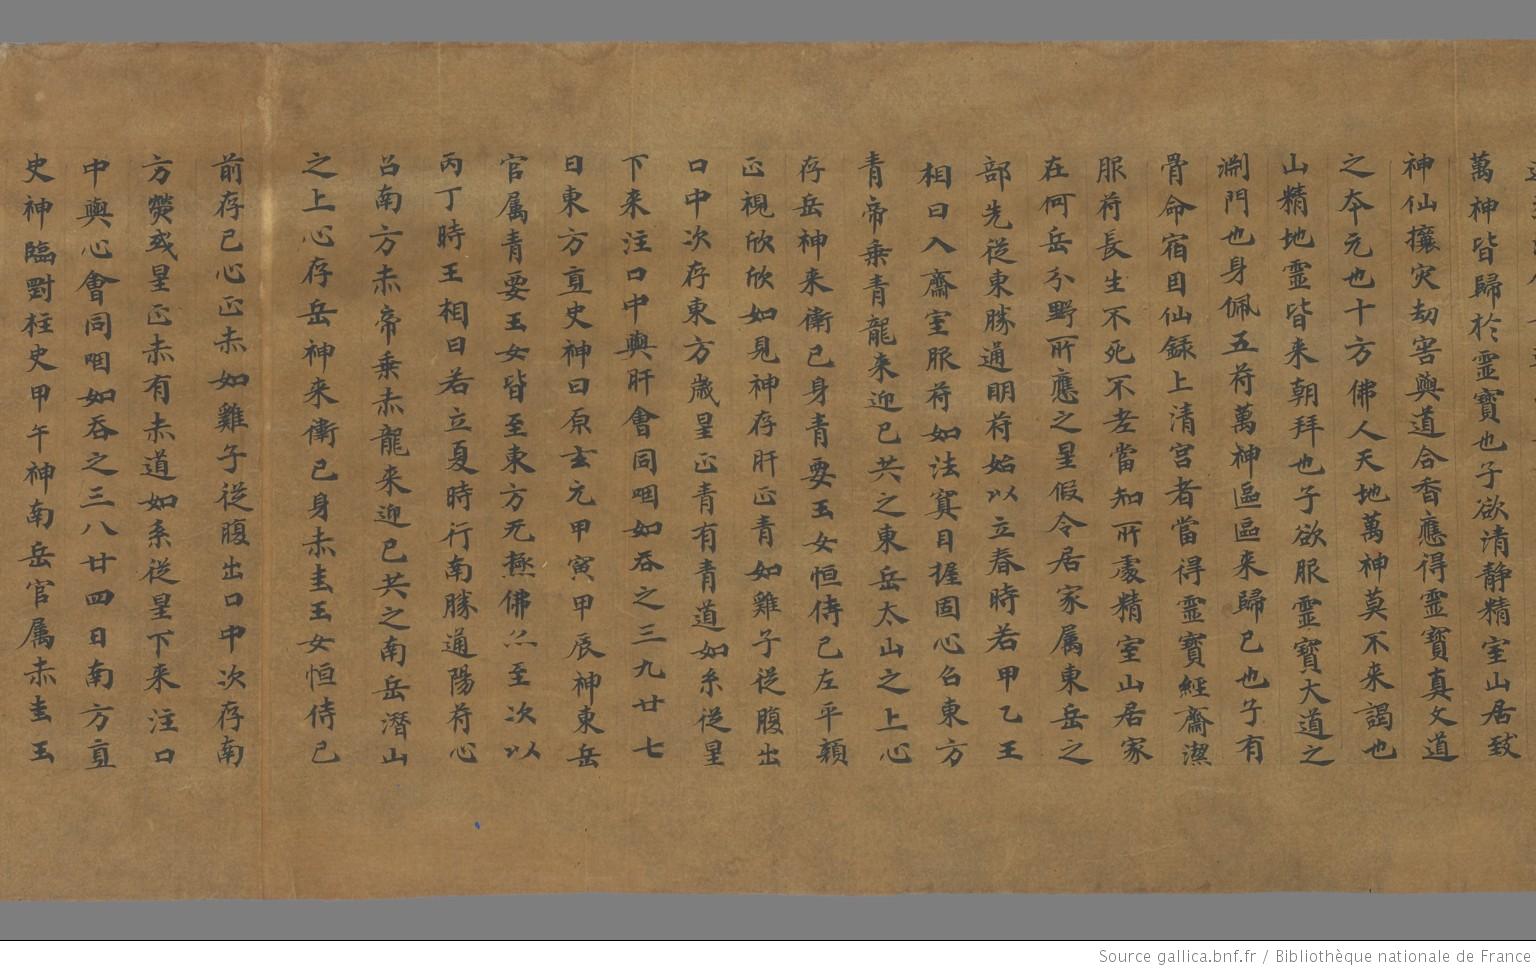 萬神皆歸於靈寶也子欲清靜精室山居致
神仙攘灾劫害與道合香應得靈寶真文道
之夲元也十方佛人天地萬神莫不来謁也
山精地靈皆来朝拜也子欲服靈寶大道之
淵門也身佩五苻萬神區區来歸已也子有
骨命宿目仙録上清宮者當得靈寶經齋潔
服苻長生不死不老當知所處精室山居家
在何岳分野所應之星假令居家属東岳之
部先從東勝通明苻始以立春時若甲乙王
相日入齋室服苻如法寞目握固心召東方
青帝乗青龍来迎已共之東岳太山之上心
存岳神来衛已身青要玉女恒侍已左平頼
正視欣欣如見神存肝正青如雞子從腹出
口中次存東方歳星正青有青道如糸從星
下来注口中與肝會同咽如吞之三九廿七
日東方直史神曰原玄元甲寅甲辰神東岳
官属青要玉女皆至東方无極佛亦至次以
丙丁時王相日若立夏時行南勝通陽苻心
召南方赤帝乗赤龍来迎已共之南岳潛山
之上心存岳神来衛已身赤圭玉女恒侍已
前存已心正赤如雞子從腹出口中次存南
方熒或星正赤有赤道如糸從星下来注口
中與心會同咽如吞之三八廿四日南方直
史神臨對柱史甲午神南岳官属赤圭玉
Source gallica.bnf.fr / Bibliothèque nationale de France